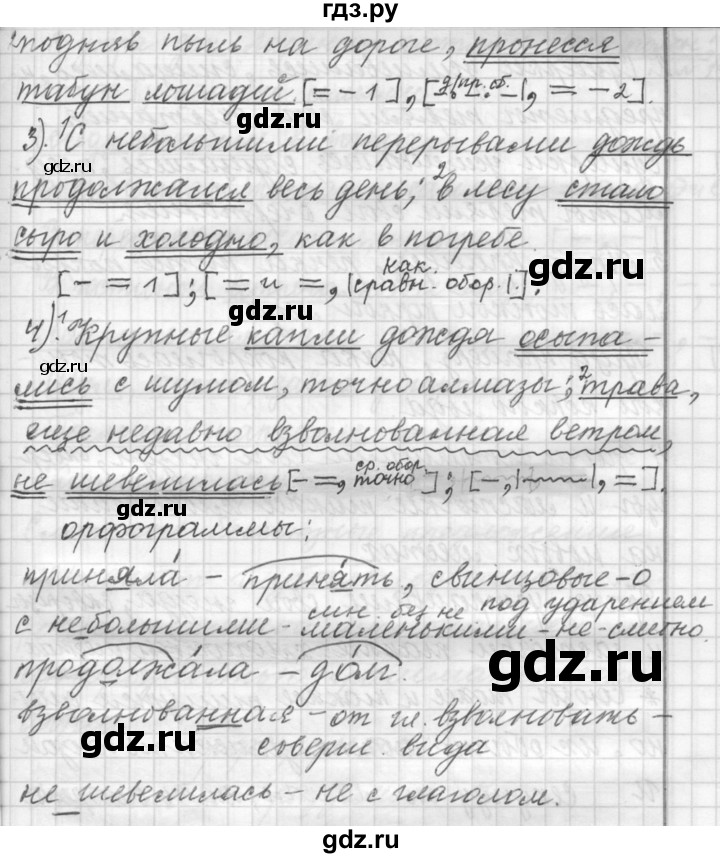 гдз.ру
подняв пыль на дороге, пронёсся
табун лошадей. [= – 1], [д/пр.об. |, = – 2].
3). ¹С небольшими перерывами дождь
продолжался весь день; ²в лесу стало
сыро и холодно, как в погребе.
[– = 1]; [= и =, |как. сравн. обор.|.].
4). ¹Крупные капли дождя осыпа-
лись с шумом, точно алмазы; ²трава,
еще недавно взволнованная ветром,
не шевелилась [– =, ср. обор. точно]; [–, |~~~|, =].
орфограммы:
приняла́ – приня́ть, свинцовые – о
под ударением
с небольшими – син. без не маленькими – не – слитно.
продолжа́ла – до́лг.
взволнованная – от гл. взволновать –
соверш. вида
не шевелилась – не с глаголом.
gdz.ru
gdz.ru
gdz.ru
gdz.ru
gdz.ru
gdz.ru
gdz.ru
gdz.ru
gdz.ru
gdz.ru
гдз.ру